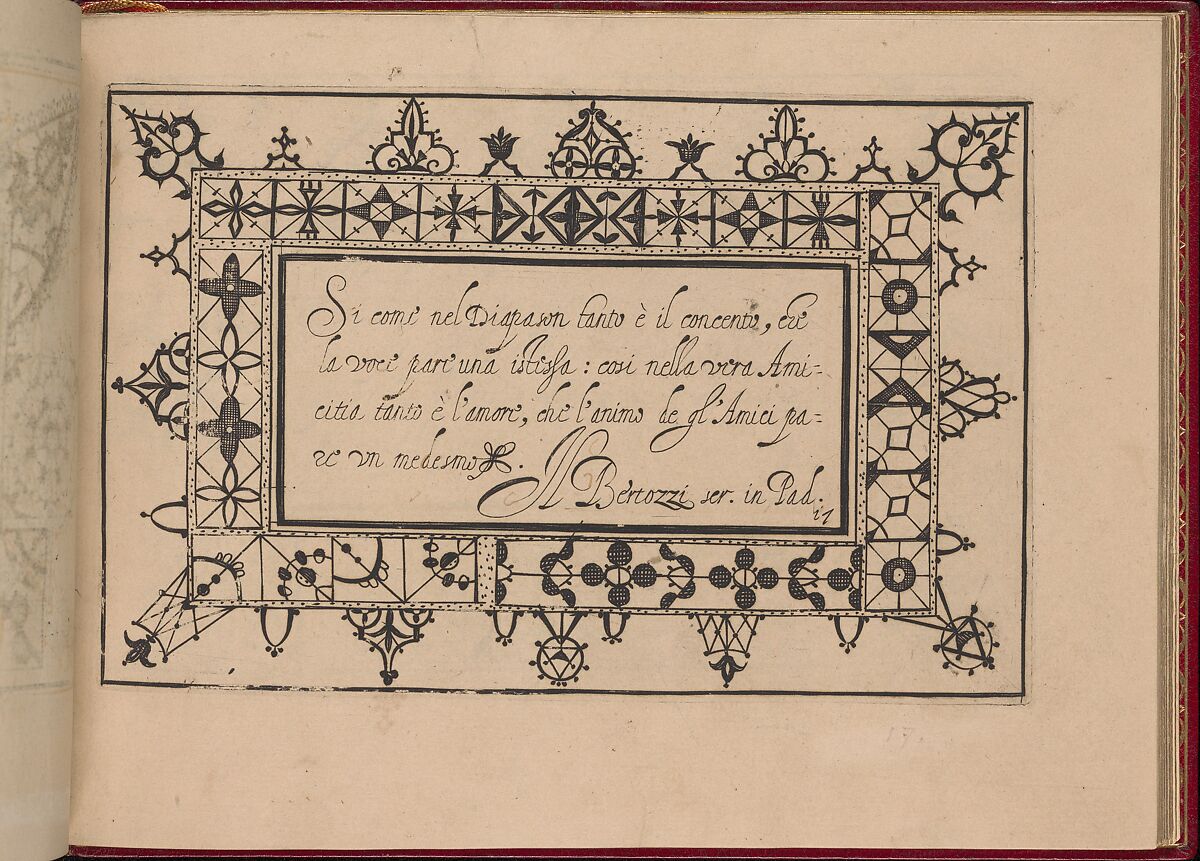 Si come nel Diapason tanto è il concento, che
la voce pare una istessa : cosi nella vera Ami-
citia tanto è l'amore, che l'animo de gl'Amici pa-
re vn medesmo.
Il Bertozzi scr. in Pad.
17
17.